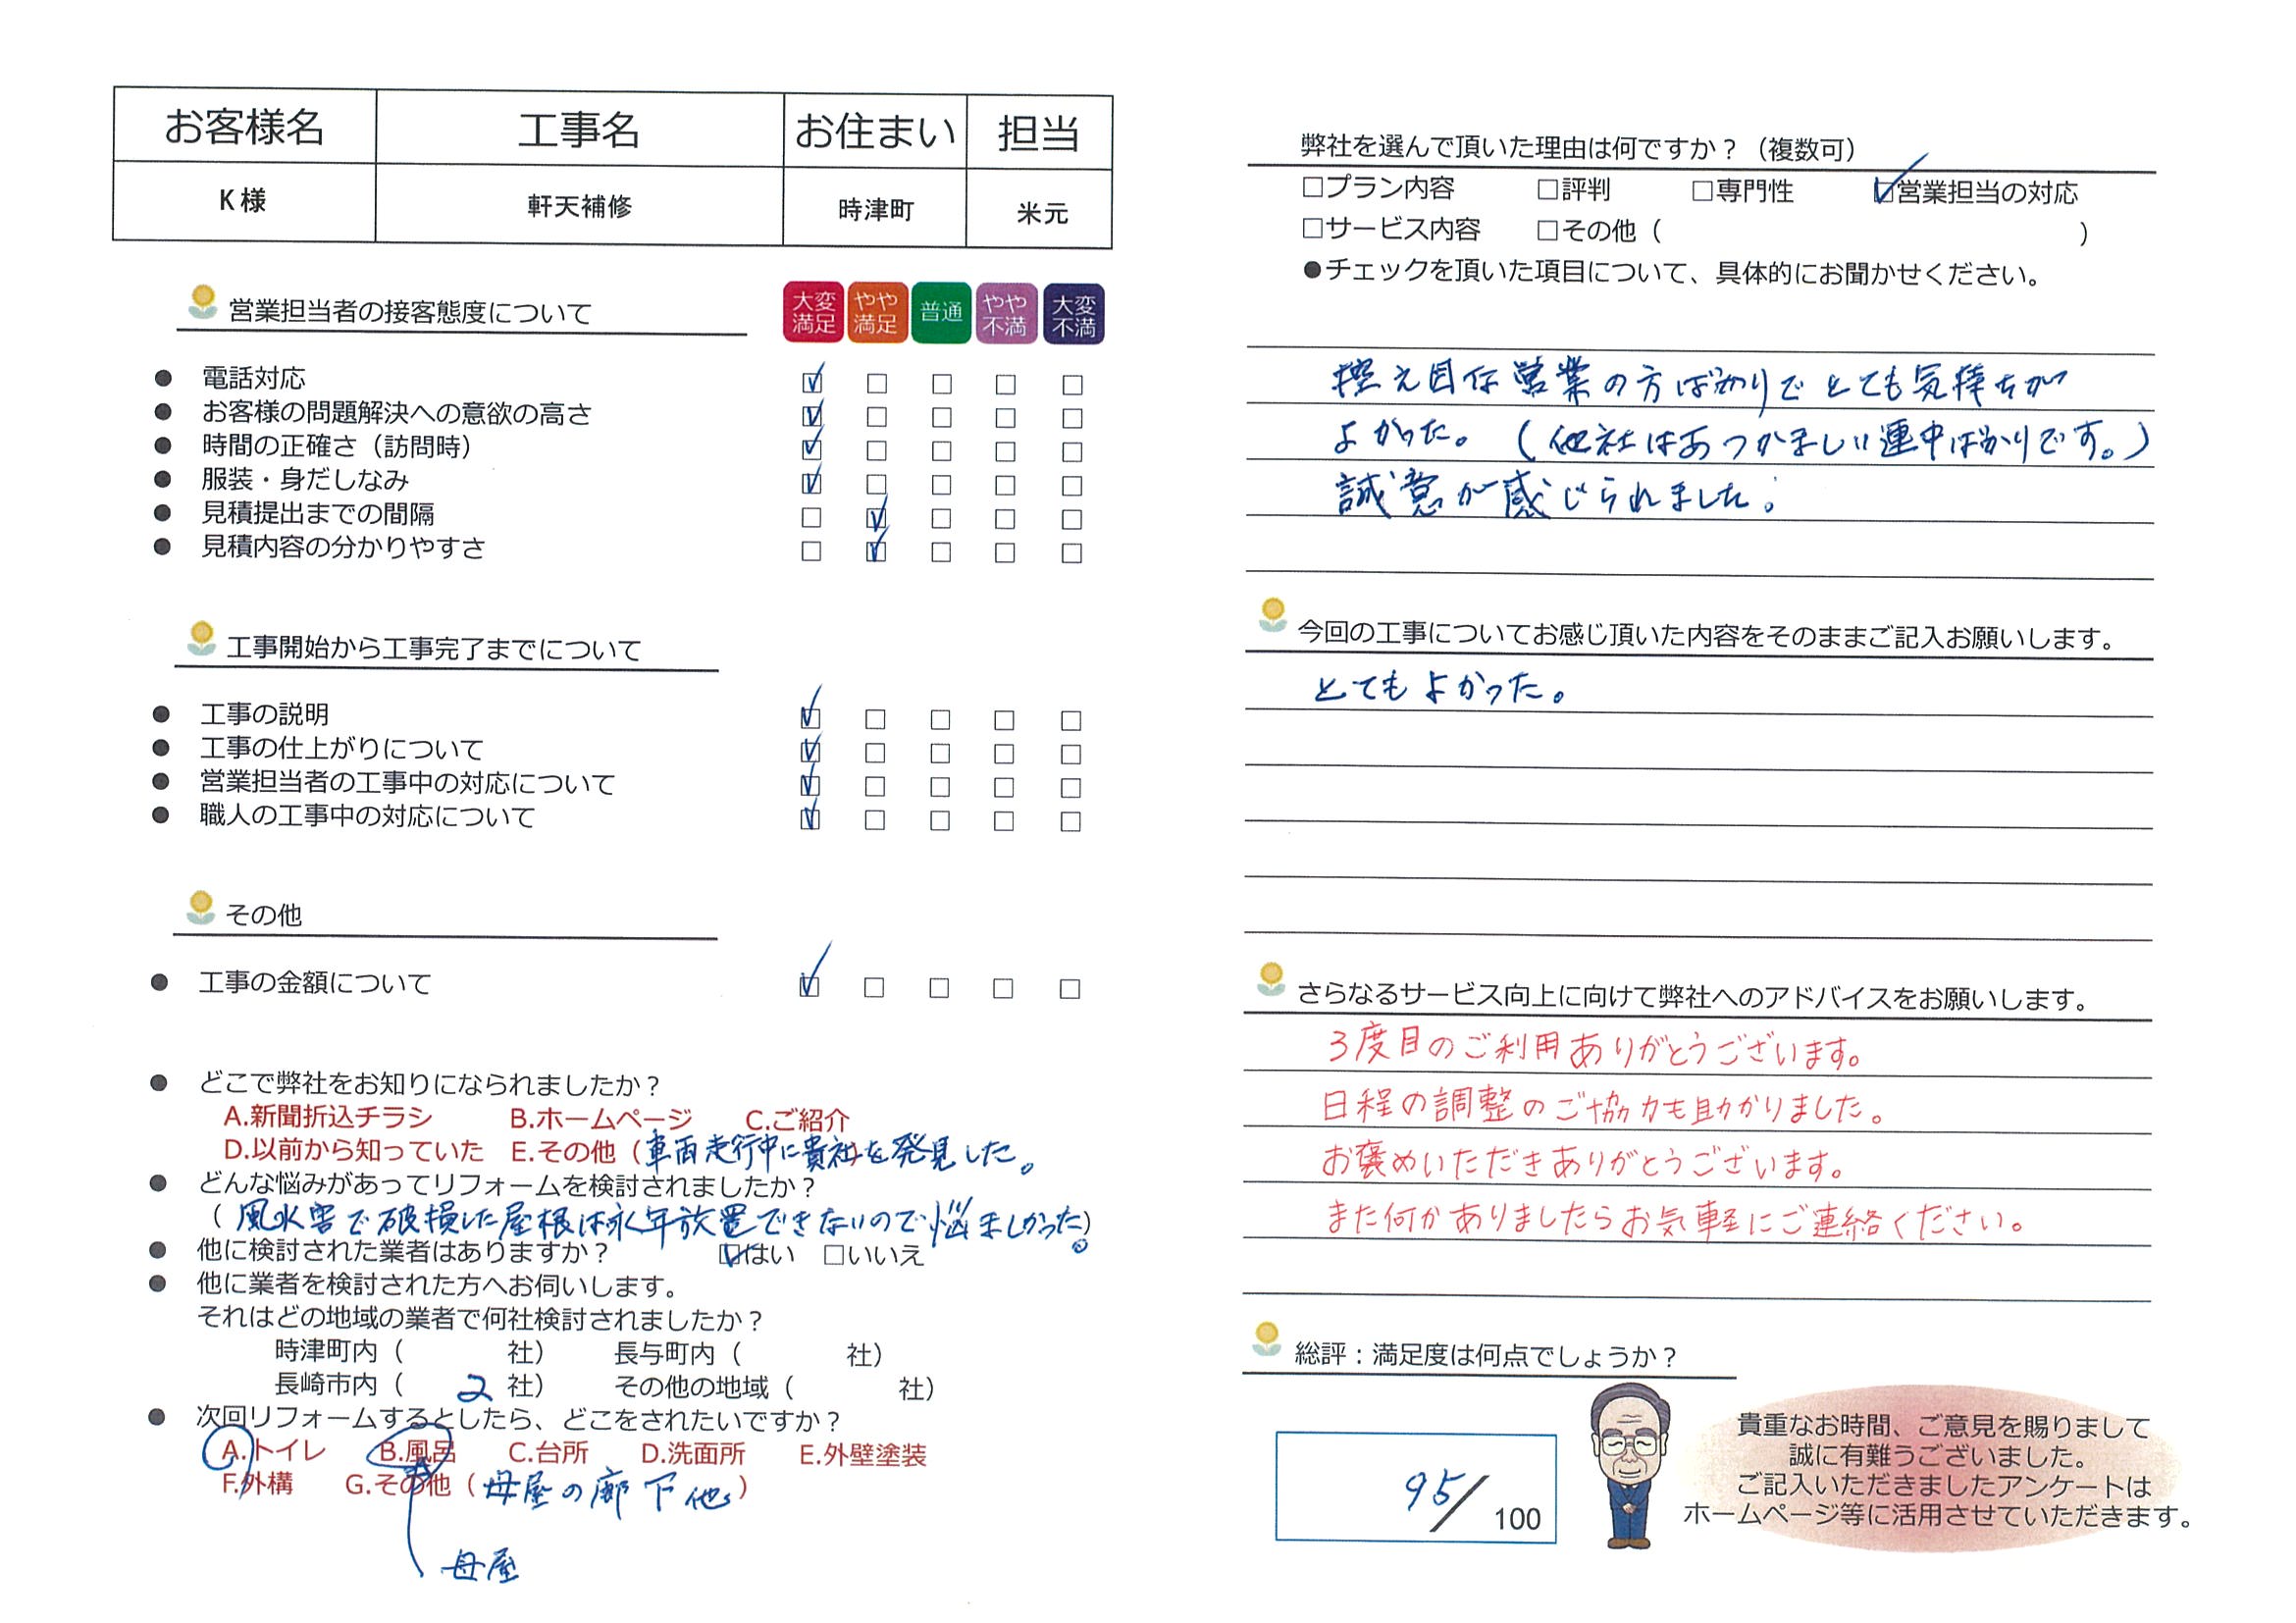 お客様名 工事名 お住まい 担当
K様 軒天補修 時津町 米元
営業担当者の接客態度について
大変満足 やや満足 普通 やや不満 大変不満
● 電話対応 ☑ □ □ □ □
● お客様の問題解決への意欲の高さ ☑ □ □ □ □
● 時間の正確さ（訪問時） ☑ □ □ □ □
● 服装・身だしなみ ☑ □ □ □ □
● 見積提出までの間隔 □ ☑ □ □ □
● 見積内容の分かりやすさ □ ☑ □ □ □
工事開始から工事完了までについて
● 工事の説明 ☑ □ □ □ □
● 工事の仕上がりについて ☑ □ □ □ □
● 営業担当者の工事中の対応について ☑ □ □ □ □
● 職人の工事中の対応について ☑ □ □ □ □
その他
● 工事の金額について ☑ □ □ □ □
● どこで弊社をお知りになられましたか？
A.新聞折込チラシ B.ホームページ C.ご紹介
D.以前から知っていた E.その他（車両走行中に貴社を発見した。
● どんな悩みがあってリフォームを検討されましたか？
（風水害で破損した屋根は永年放置できないので悩ましかった。）
● 他に検討された業者はありますか？ ☑はい □いいえ
● 他に業者を検討された方へお伺いします。
それはどの地域の業者で何社検討されましたか？
時津町内（ 社） 長与町内（ 社）
長崎市内（ 2 社） その他の地域（ 社）
● 次回リフォームするとしたら、どこをされたいですか？
A.トイレ B.風呂 C.台所 D.洗面所 E.外壁塗装
F.外構 G.その他（母屋の廊下他）
母屋
弊社を選んで頂いた理由は何ですか？（複数可）
□プラン内容 □評判 □専門性 ☑営業担当の対応
□サービス内容 □その他（ ）
●チェックを頂いた項目について、具体的にお聞かせください。
控え目な営業の方ばかりでとても気持ちが
よかった。（他社はあつかましい連中ばかりです。）
誠意が感じられました。
今回の工事についてお感じ頂いた内容をそのままご記入お願いします。
とてもよかった。
さらなるサービス向上に向けて弊社へのアドバイスをお願いします。
3度目のご利用ありがとうございます。
日程の調整のご協力も助かりました。
お褒めいただきありがとうございます。
また何かありましたらお気軽にご連絡ください。
総評：満足度は何点でしょうか？
95/100
貴重なお時間、ご意見を賜りまして
誠に有難うございました。
ご記入いただきましたアンケートは
ホームページ等に活用させていただきます。